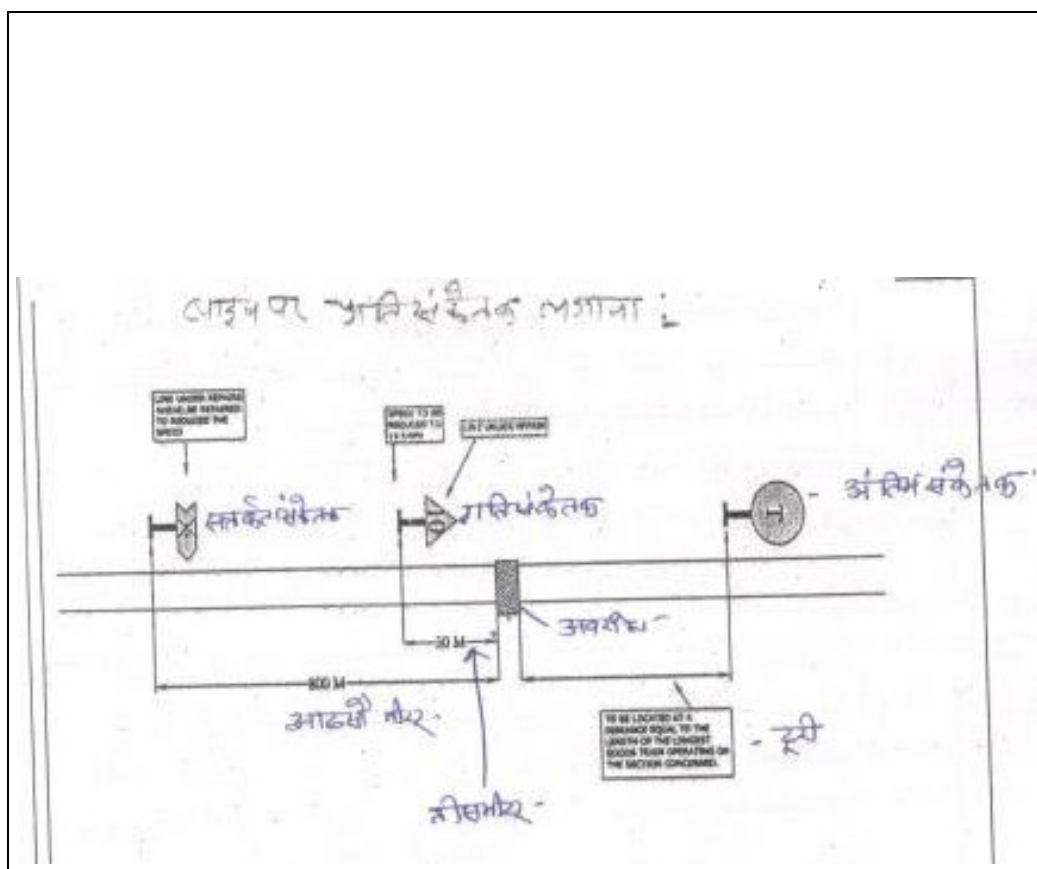 लाइन पर गति संकेतक लगाना :
LINE UNDER REPAIRS
TO REDUCED THE
SPEED
SPEED TO BE
REDUCED TO
LINE UNDER REPAIR
सतर्कता संकेतक
गति संकेतक
T
अंतिम संकेतक
अवरोध -
30 M
800 M
आठ सौ मीटर -
TO BE LOCATED AT A
DISTANCE EQUAL TO THE
LENGTH OF THE LONGEST
GOODS TRAIN OPERATING ON
THE SECTION CONCERNED.
- दूरी
तीस मीटर -